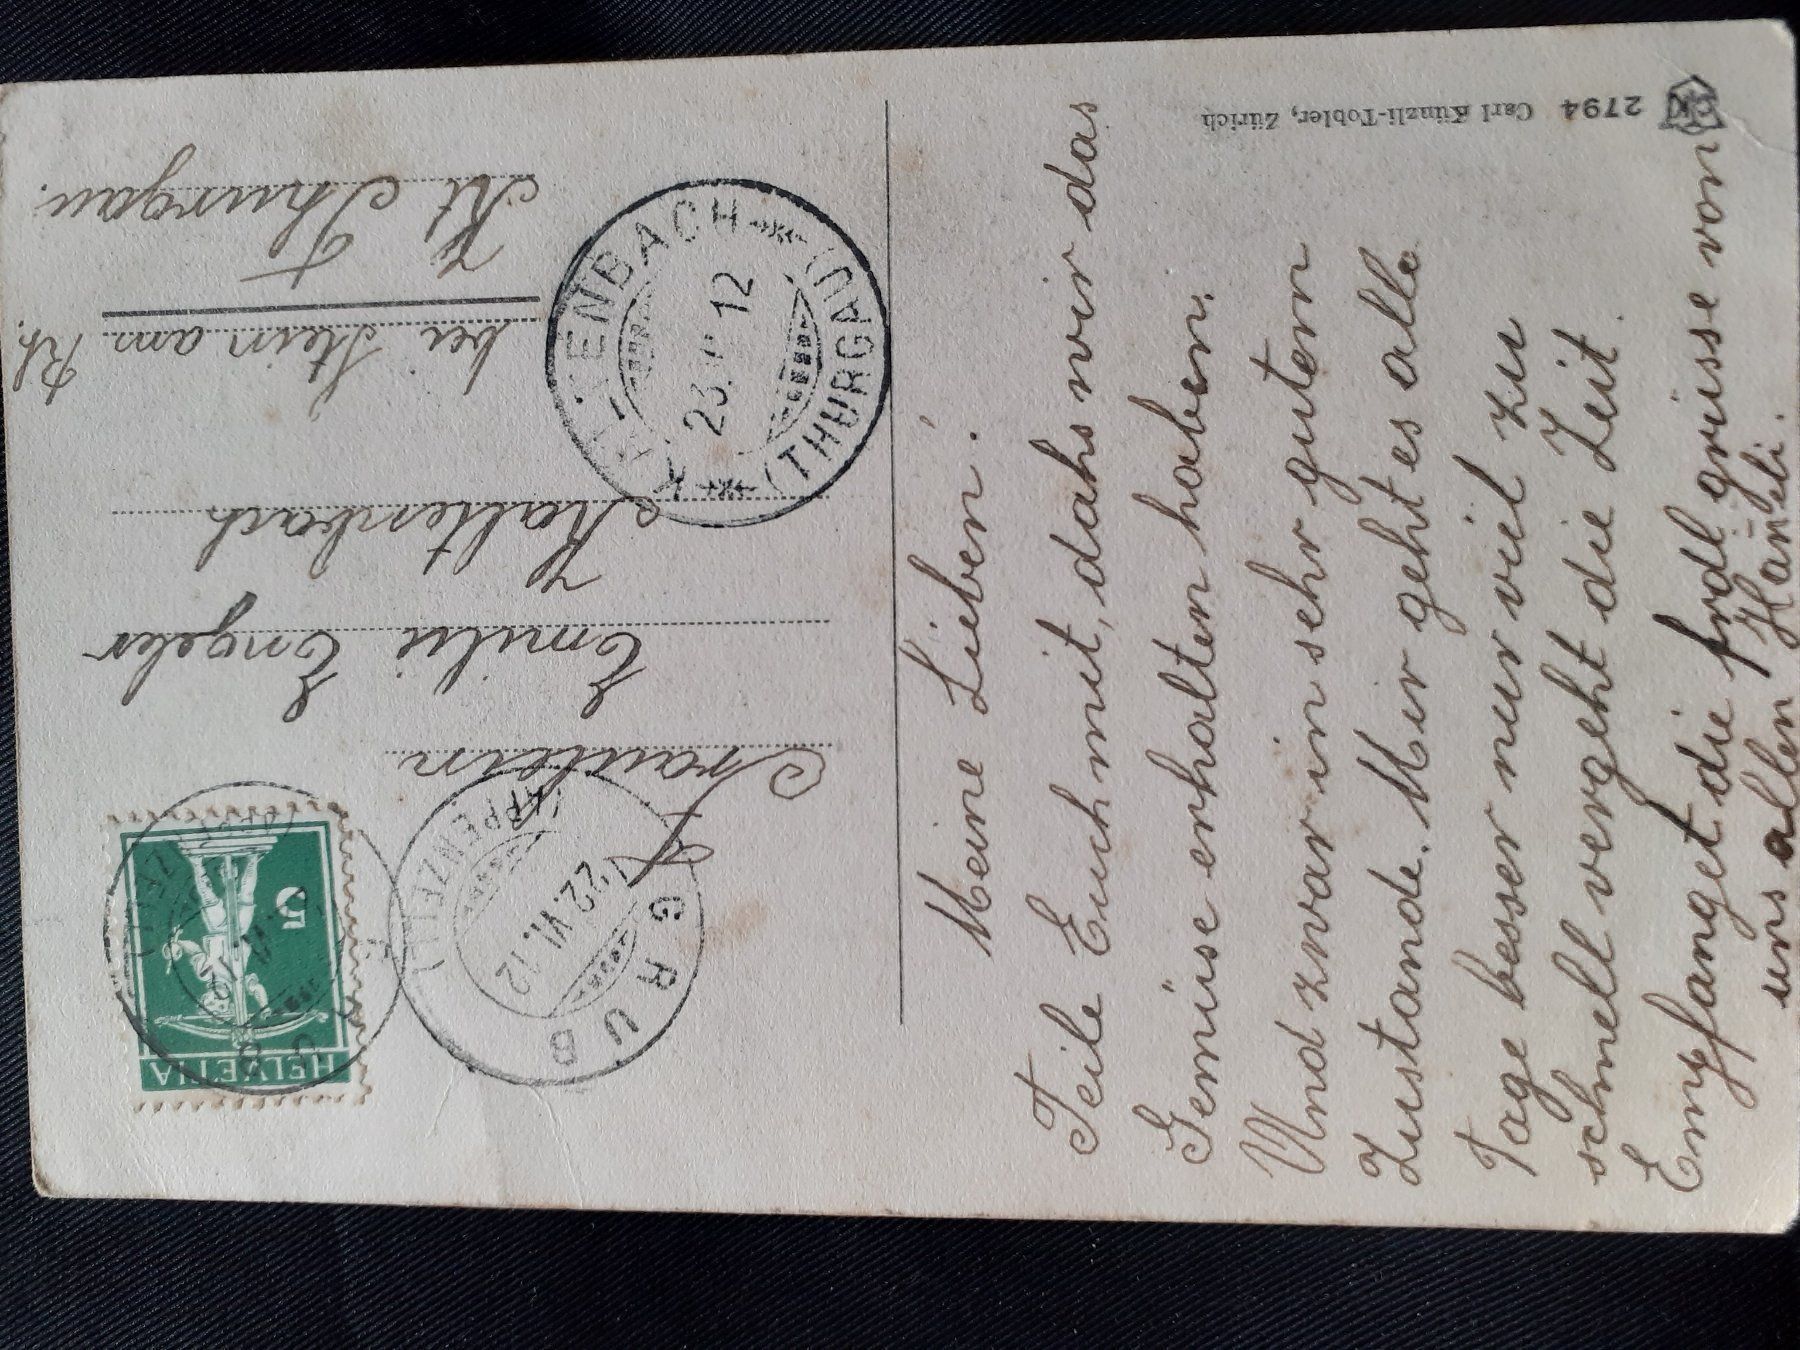 Meine Lieben!
Teile Euch mit, dahs wir das
Gemüse erhalten haben.
Und zwar in sehr gutem
Zustande. Mir geht es alle
Tage besser nur viel zu
schnell vergeht die Zeit.
Empfanget die frdl grüsse von
uns allen Hansli.
Fräulein
Emilie Engeler
Kaltenbach
bei Stein am Rh.
Kt Thurgau.
HELVETIA
5
GRUB
(APPENZELL)
22.VI.12
KALTENBACH
(THURGAU)
23.VI.12
CKT
2794 Carl Künzli-Tobler, Zürich